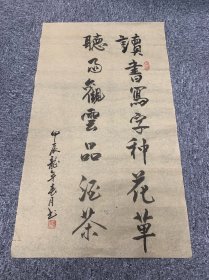 讀書寫字种花草
聽雨觀雲品酒茶
甲辰龍年春月书